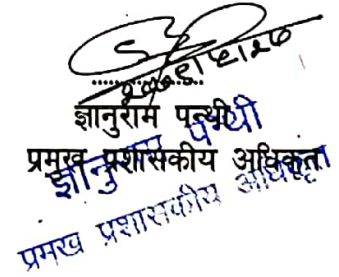 ज्ञानुराम पन्थी
प्रमुख प्रशासकीय अधिकृत
ज्ञानुराम पन्थी
प्रमुख प्रशासकीय अधिकृत